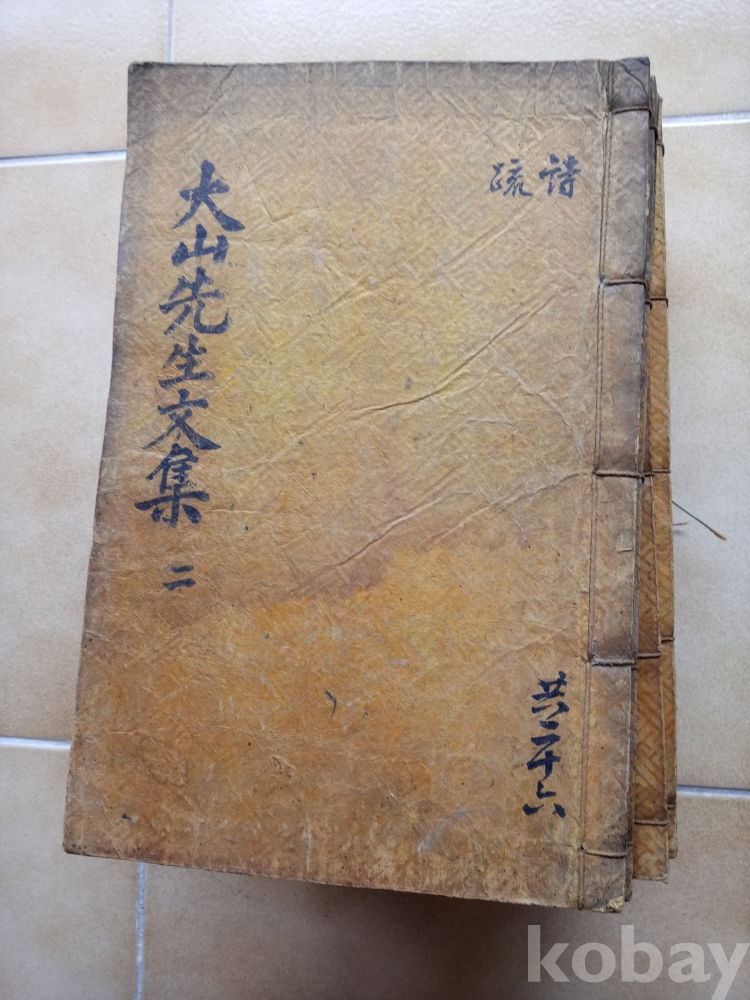 詩疏
大山先生文集 二
共二十六
kobay